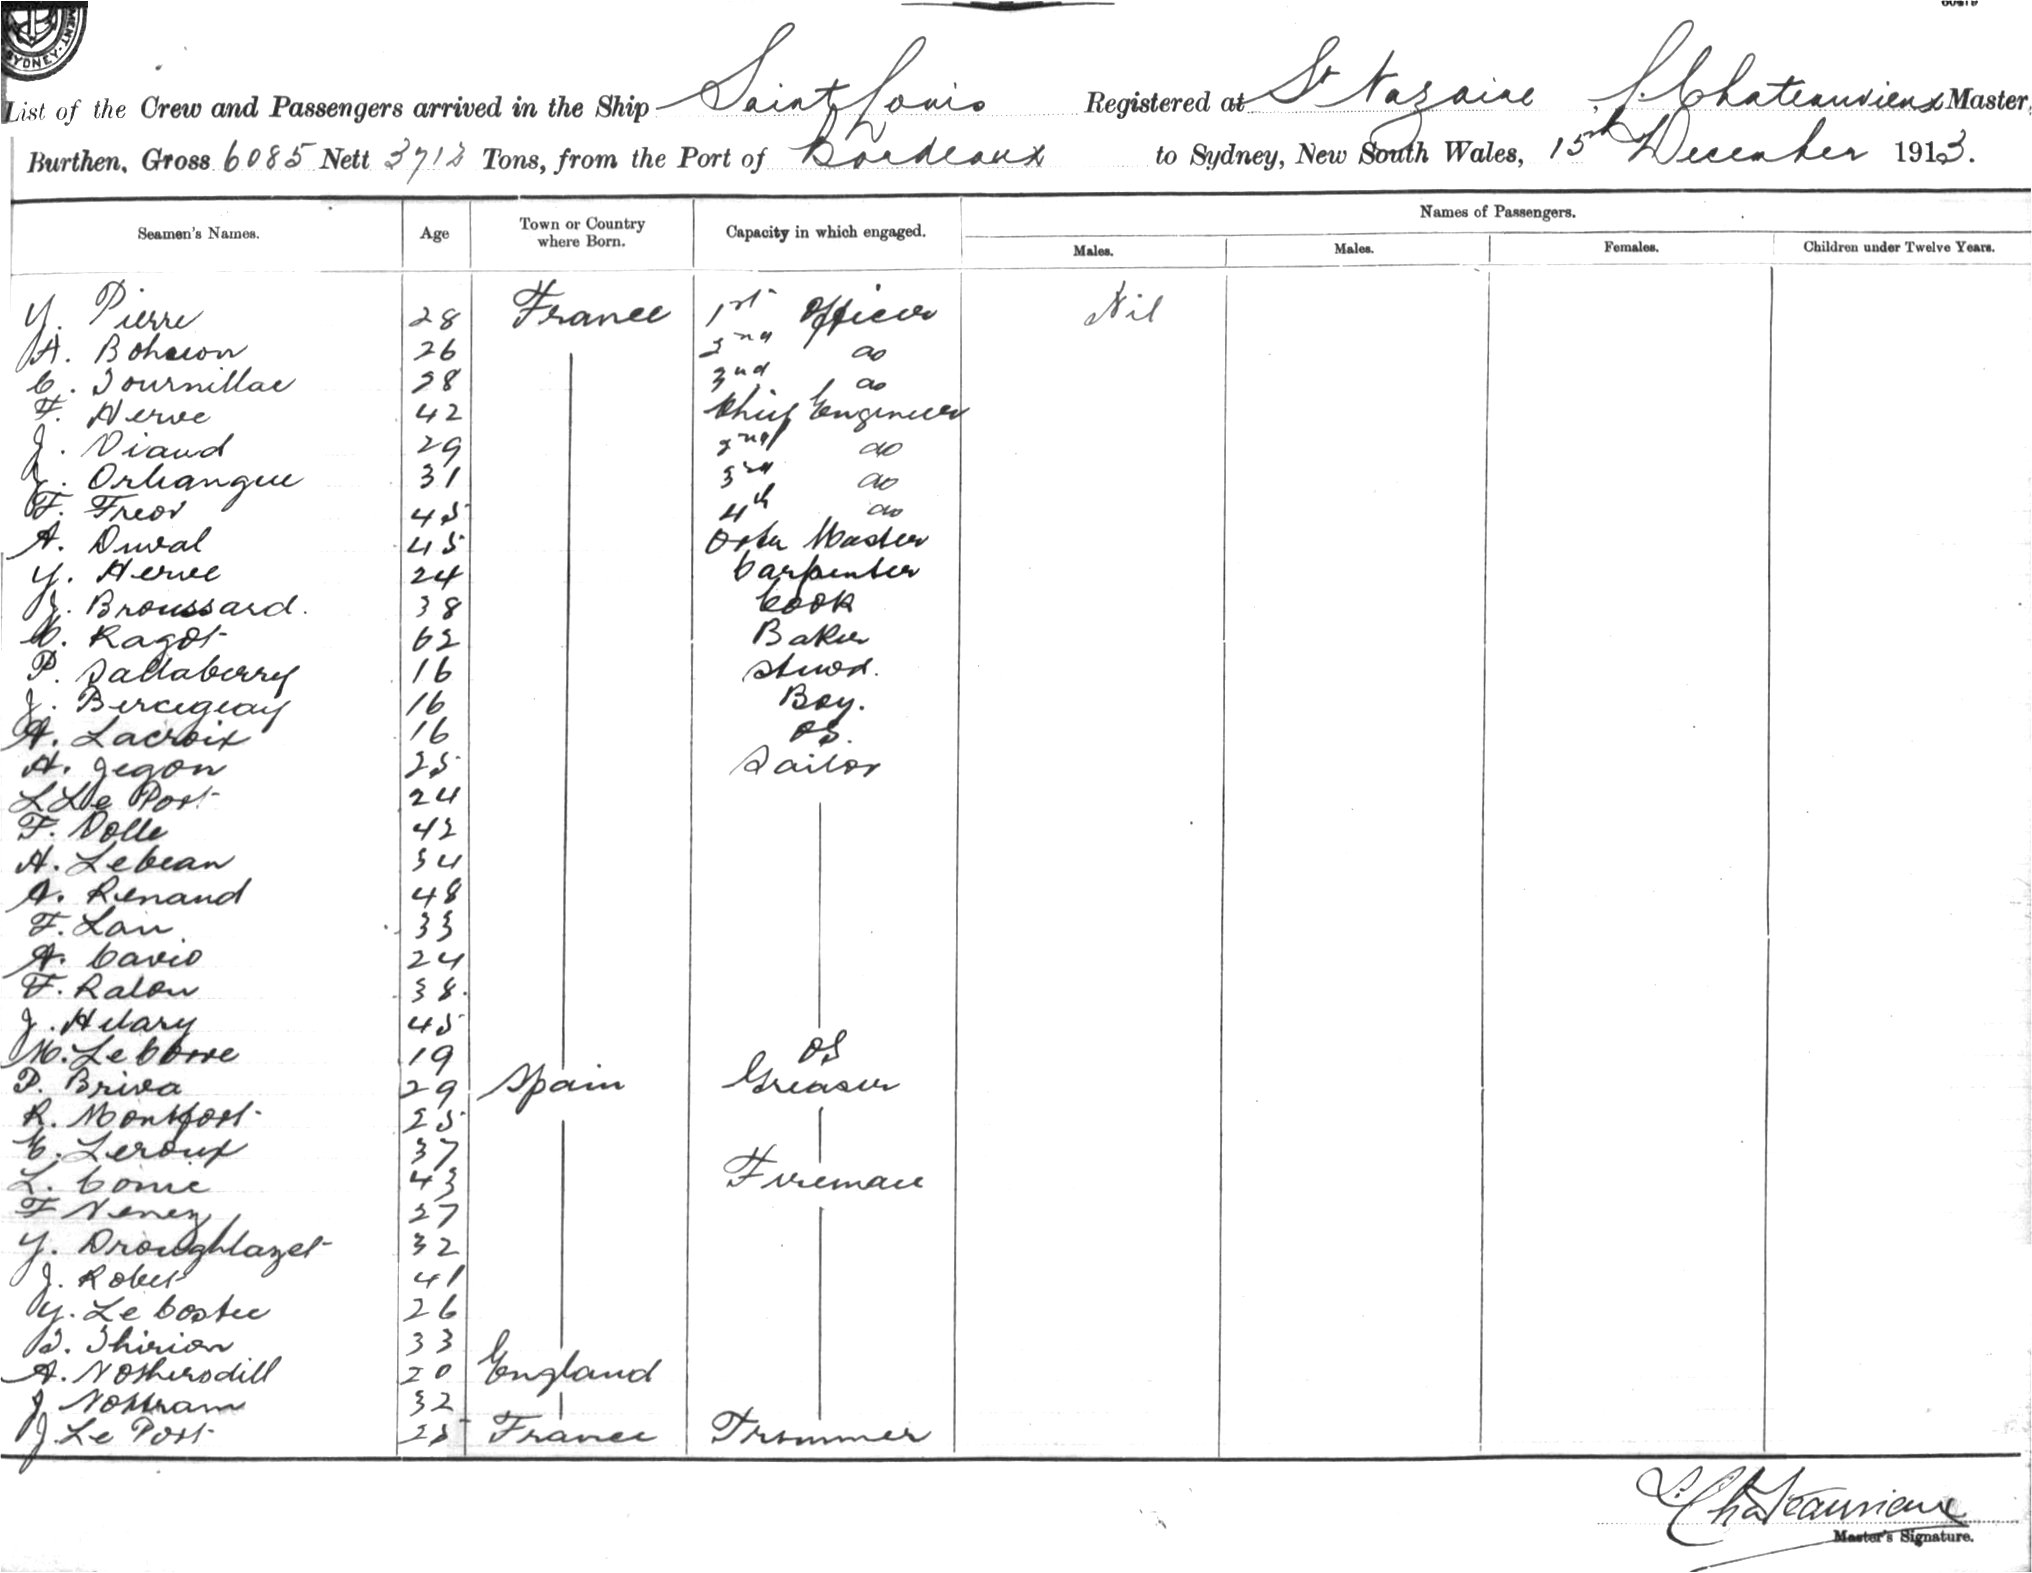 SYDNEY
List of the Crew and Passengers arrived in the Ship Saint Louis Registered at St Nazaire, L. Chateauvieux Master,
Burthen, Gross 6085 Nett 3713 Tons, from the Port of Bordeaux to Sydney, New South Wales, 15th December 1913.
Names of Passengers.
Seamen's Names. Age Town or Country where Born. Capacity in which engaged. Males. Males. Females. Children under Twelve Years.
Y. Pierre 28 France 1st Officer Nil
A. 26 2nd do
C. Tournillac 28 3rd do
F. Herve 42 Chief Engineer
J. Viaud 29 2nd do
31 3rd do
F. 45 4th do
A. Duval 45 Master
Y. Herve 24 Carpenter
J. Broussard. 38 Cook
Ragot 62 Baker
P. Sallaberry 16 Stwd.
J. Bercegeay 16 Boy.
A. Lacroix 16 OS.
A. Jegon 25 Sailor
L Le Port 24
F. Dolle 42
A. Lebean 34
A. Renaud 48
F. Lau 33
A. Cavio 24
F. Ralon 38
J. Hilary 45
M. 19 OS
P. Briva 29 Spain Greaser
R. Montfort 25
E. Leroux 37
L. 43 Fireman
F 27
Y. 32
J. Robert 41
Y. Le 26
T. Thirion 33
A. 20 England
J. 32
J. Le Port 25 France Trimmer
L. Chateauvieux
Master's Signature.